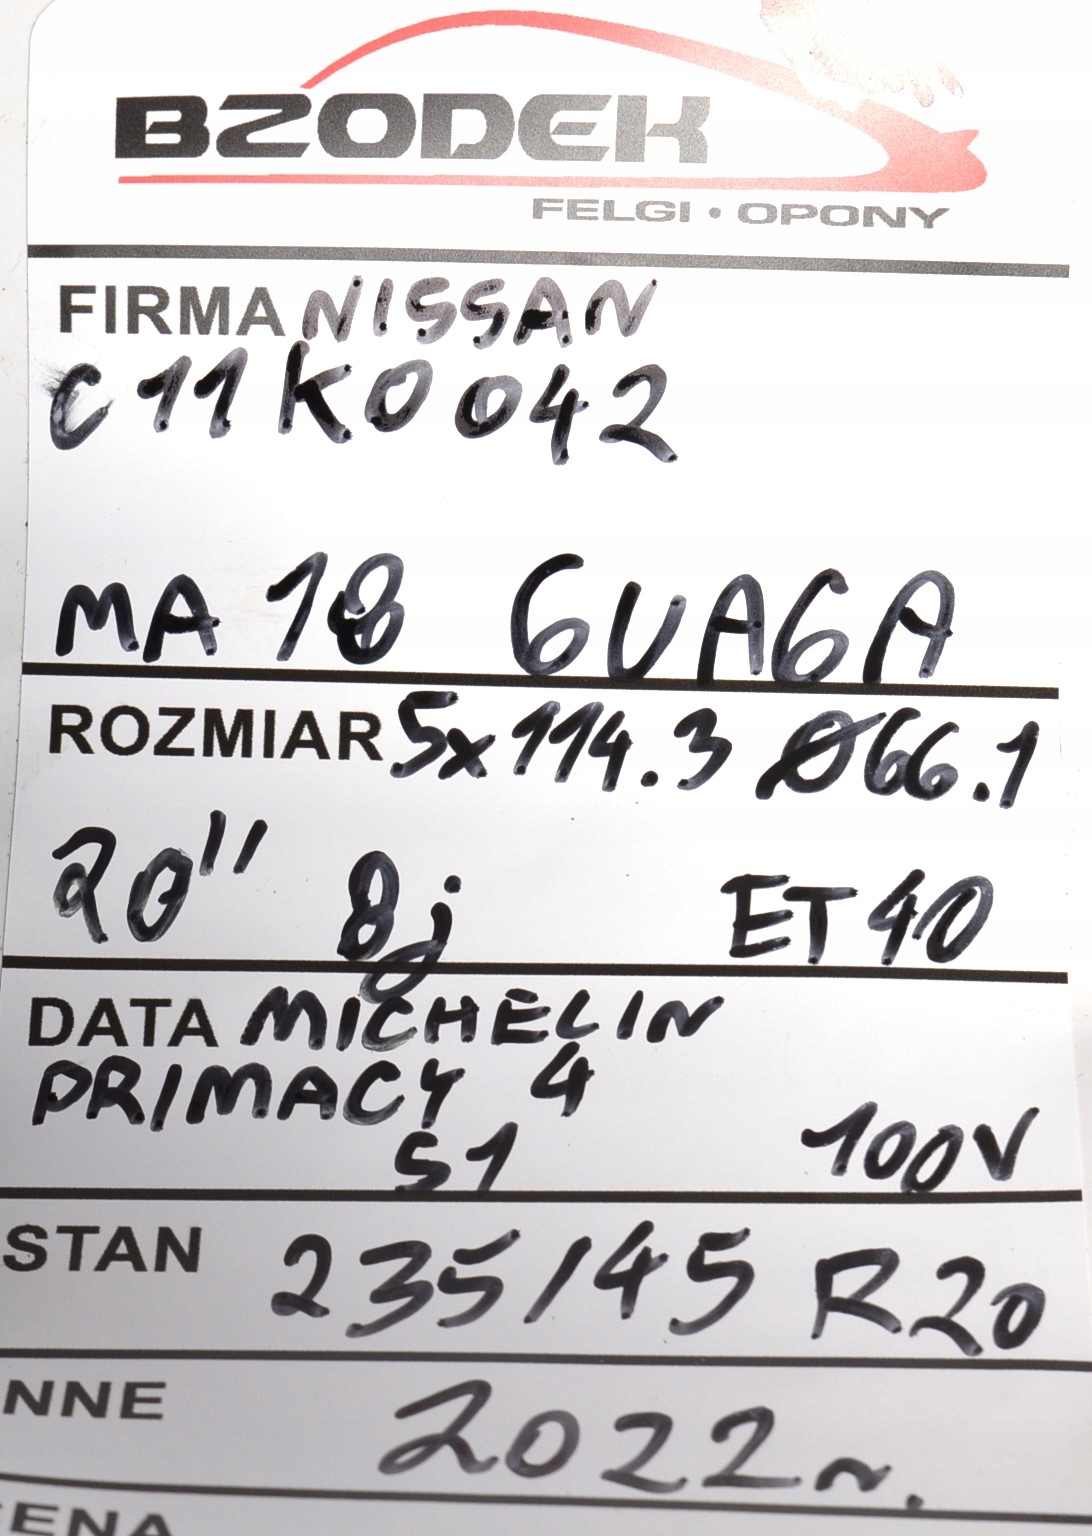 BZODEK
FELGI • OPONY
FIRMA NISSAN
C11K0042
MA 18 6UA6A
ROZMIAR 5x114.3 Ø66.1
20" 8j ET40
DATA MICHELIN
PRIMACY 4
S1 100V
STAN 235/45 R20
NNE 2022r.
CENA